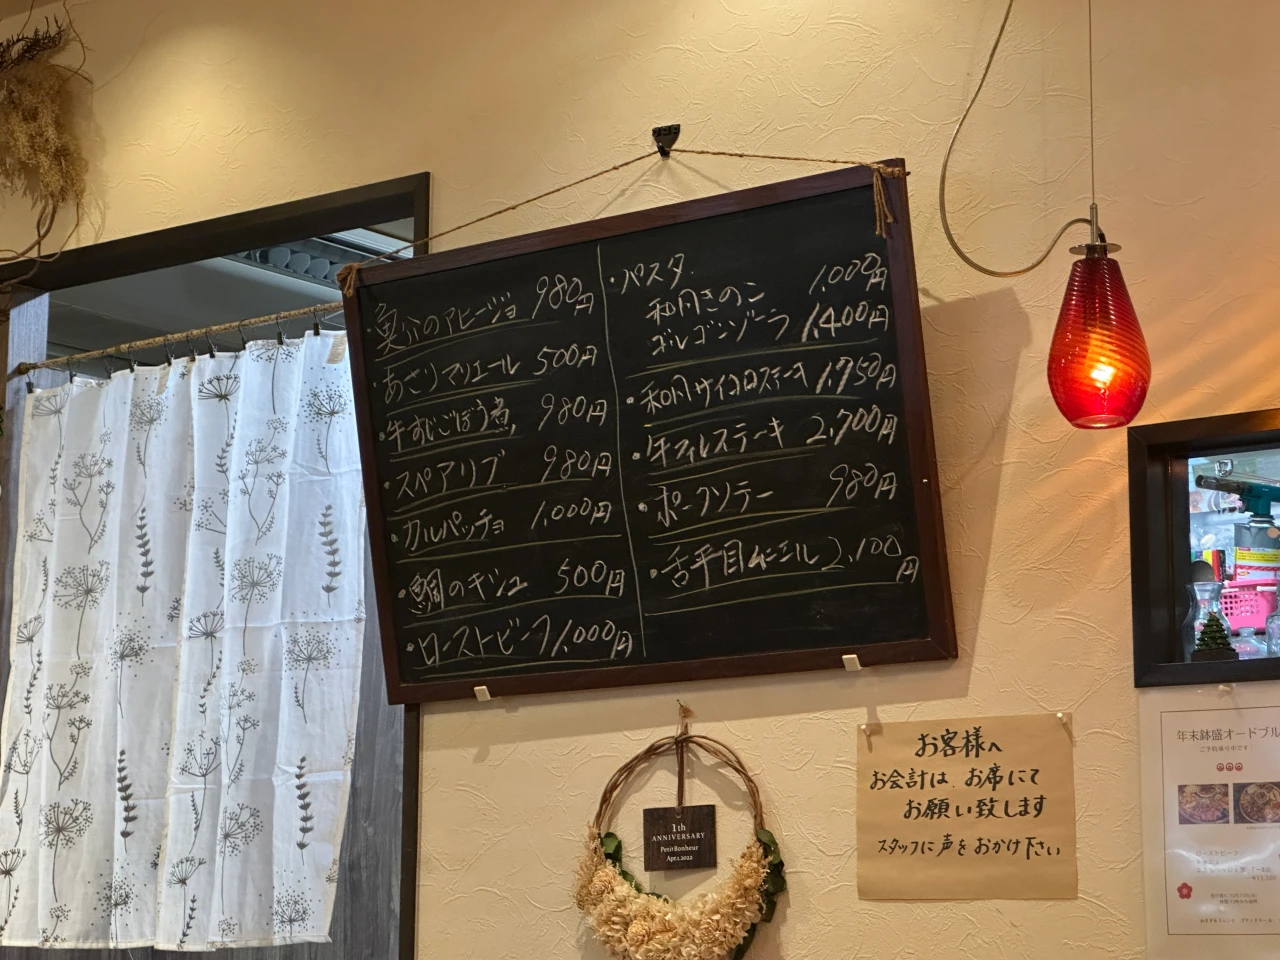 ・魚介のアヒージョ 980円
・あさりマリエール 500円
・牛すじごぼう煮 980円
・スペアリブ 980円
・カルパッチョ 1,000円
・鯛のキッシュ 500円
・ローストビーフ 1,000円
・パスタ
和風きのこ 1,000円
ゴルゴンゾーラ 1,400円
・和風サイコロステーキ 1,750円
・牛フィレステーキ 2,700円
・ポークソテー 980円
・舌平目ムニエル 2,100円
1th
ANNIVERSARY
PetitBonheur
Apr.1.2022
お客様へ
お会計は、お席にて
お願い致します
スタッフに声をおかけ下さい
年末鉢盛オードブル
ご予約承り中です
ローストビーフ